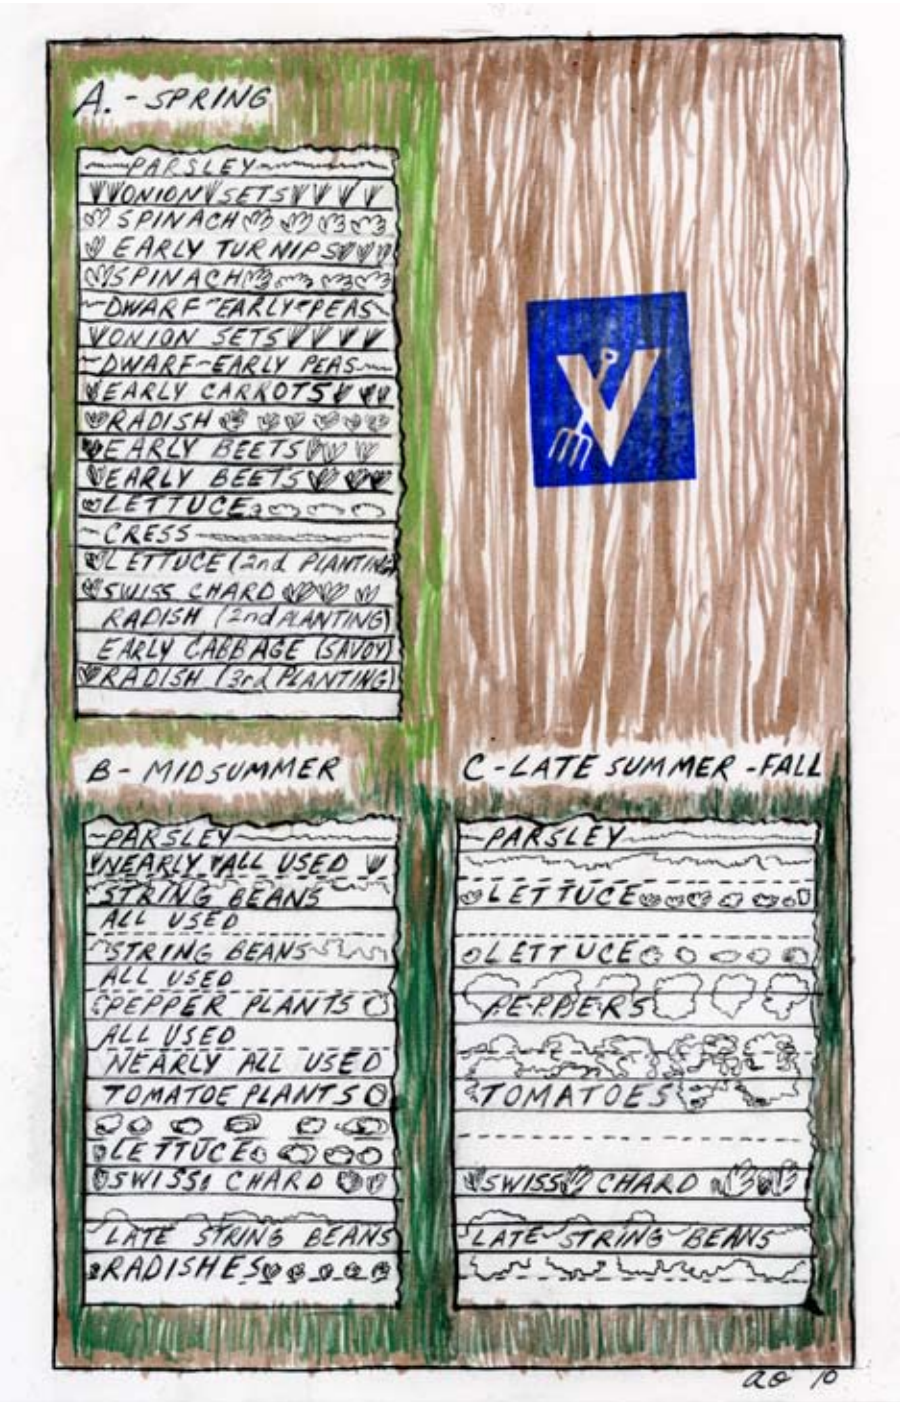 A. - SPRING
PARSLEY
ONION SETS
SPINACH
EARLY TURNIPS
SPINACH
DWARF-EARLY-PEAS
ONION SETS
DWARF-EARLY PEAS
EARLY CARROTS
RADISH
EARLY BEETS
EARLY BEETS
LETTUCE
CRESS
LETTUCE (2nd PLANTING)
SWISS CHARD
RADISH (2nd PLANTING)
EARLY CABBAGE (SAVOY)
RADISH (3rd PLANTING)
V
B - MIDSUMMER
PARSLEY
NEARLY ALL USED
STRING BEANS
ALL USED
STRING BEANS
ALL USED
PEPPER PLANTS
ALL USED
NEARLY ALL USED
TOMATOE PLANTS
LETTUCE
SWISS CHARD
LATE STRING BEANS
RADISHES
C - LATE SUMMER - FALL
PARSLEY
LETTUCE
LETTUCE
PEPPERS
TOMATOES
SWISS CHARD
LATE STRING BEANS